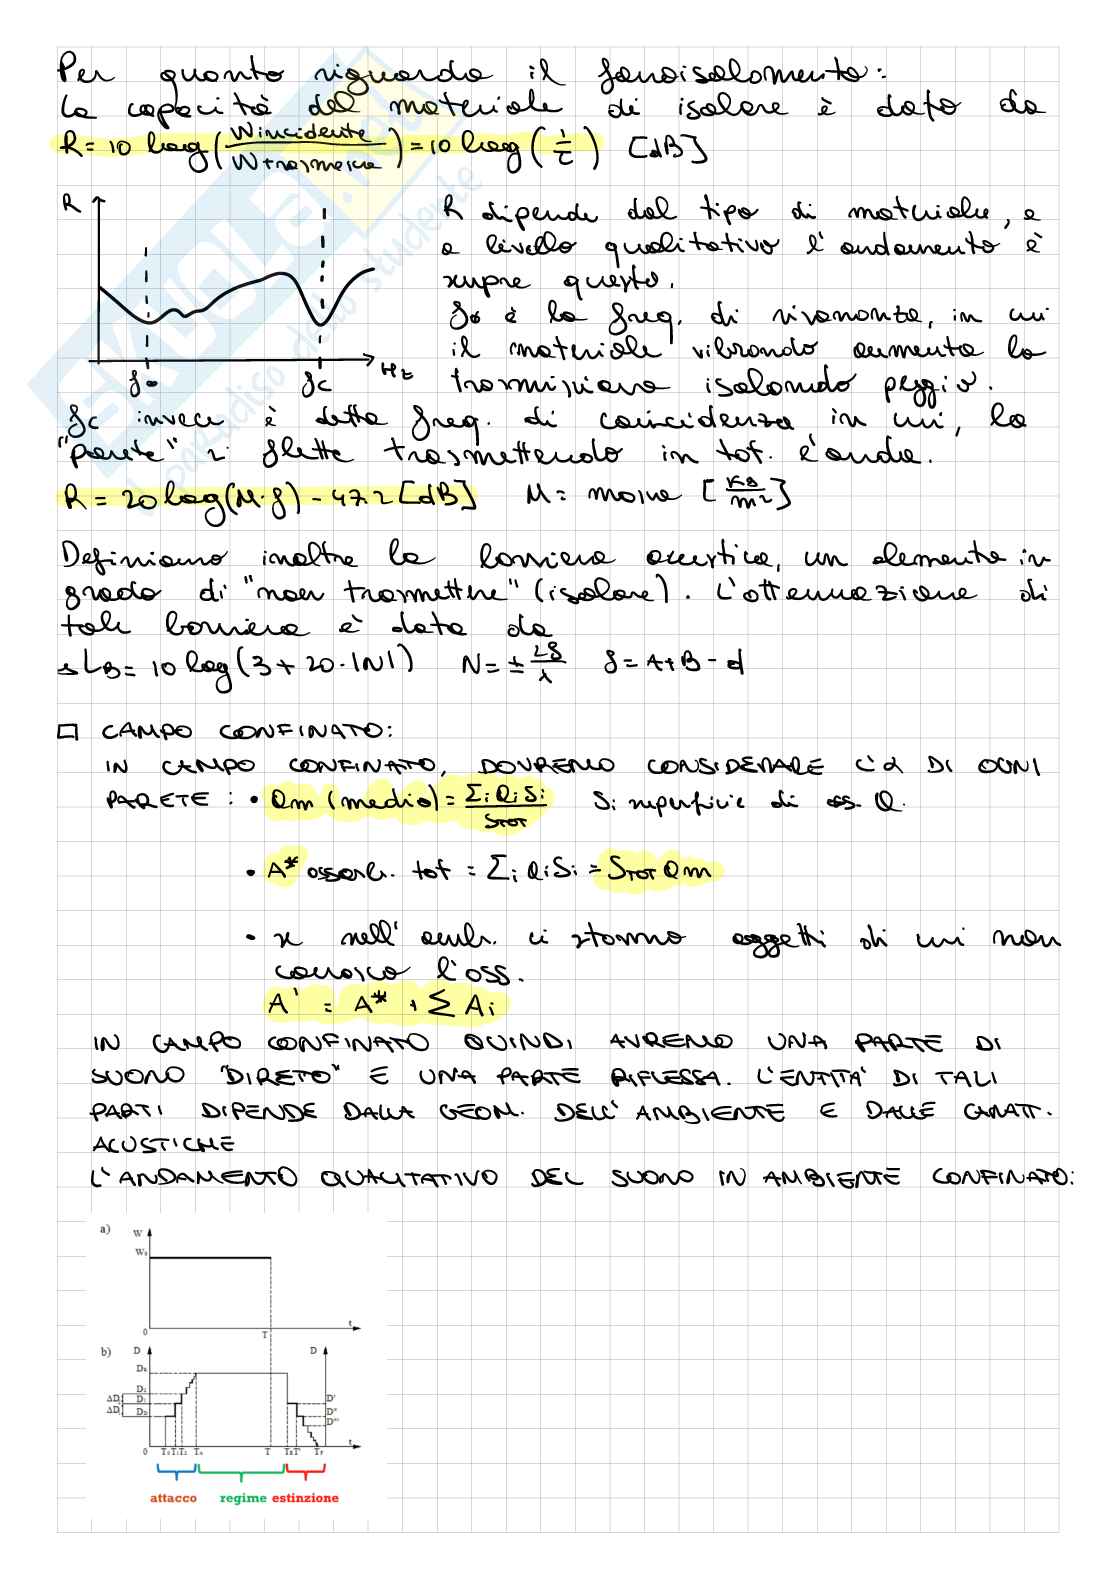 Per quanto riguarda il fonoisolamento:
La capacità del materiale di isolare è dato da
R = 10 log (Wincidente / Wtrasmessa) = 10 log (1/τ) [dB]
R
R dipende dal tipo di materiale, e
a livello qualitativo l'andamento è
sempre questo.
f0 è la freq. di risonanza, in cui
il materiale vibrando aumenta la
f0 fc Hz
trasmissione isolando peggio.
fc invece è detta freq. di coincidenza in cui, la
"parete" si flette trasmettendo in tot. l'onda.
R = 20 log(M·f) - 47.2 [dB] M = massa [kg/m²]
Definiamo inoltre la barriera acustica, un elemento in
grado di "non trasmettere" (isolare). L'attenuazione di
tale barriera è data da
LB = 10 log(3 + 20·|N|) N = ± 2δ/λ δ = A+B-d
CAMPO CONFINATO:
IN CAMPO CONFINATO, DOVREMO CONSIDERARE L'α DI OGNI
PARETE: • am (medio) = Σi ai Si / STOT Si superficie di ass. a.
• A* assorb. tot = Σi ai Si = STOT am
• se nell'amb. ci stanno oggetti di cui non
conosco l'ass.
A' = A* + Σ Ai
IN CAMPO CONFINATO QUINDI AVREMO UNA PARTE DI
SUONO "DIRETO" E UNA PARTE RIFLESSA. L'ENTITA' DI TALI
PARTI DIPENDE DALLA GEOM. DELL'AMBIENTE E DALLE CARATT.
ACUSTICHE
L'ANDAMENTO QUALITATIVO DEL SUONO IN AMBIENTE CONFINATO:
a) W
W0
0 T t
b) D D
D1
D0
ΔD
ΔD
D'
D''
D'''
0 T0 T1 T2 T t
attacco regime estinzione
SKUOLA.net
il paradiso dello studente